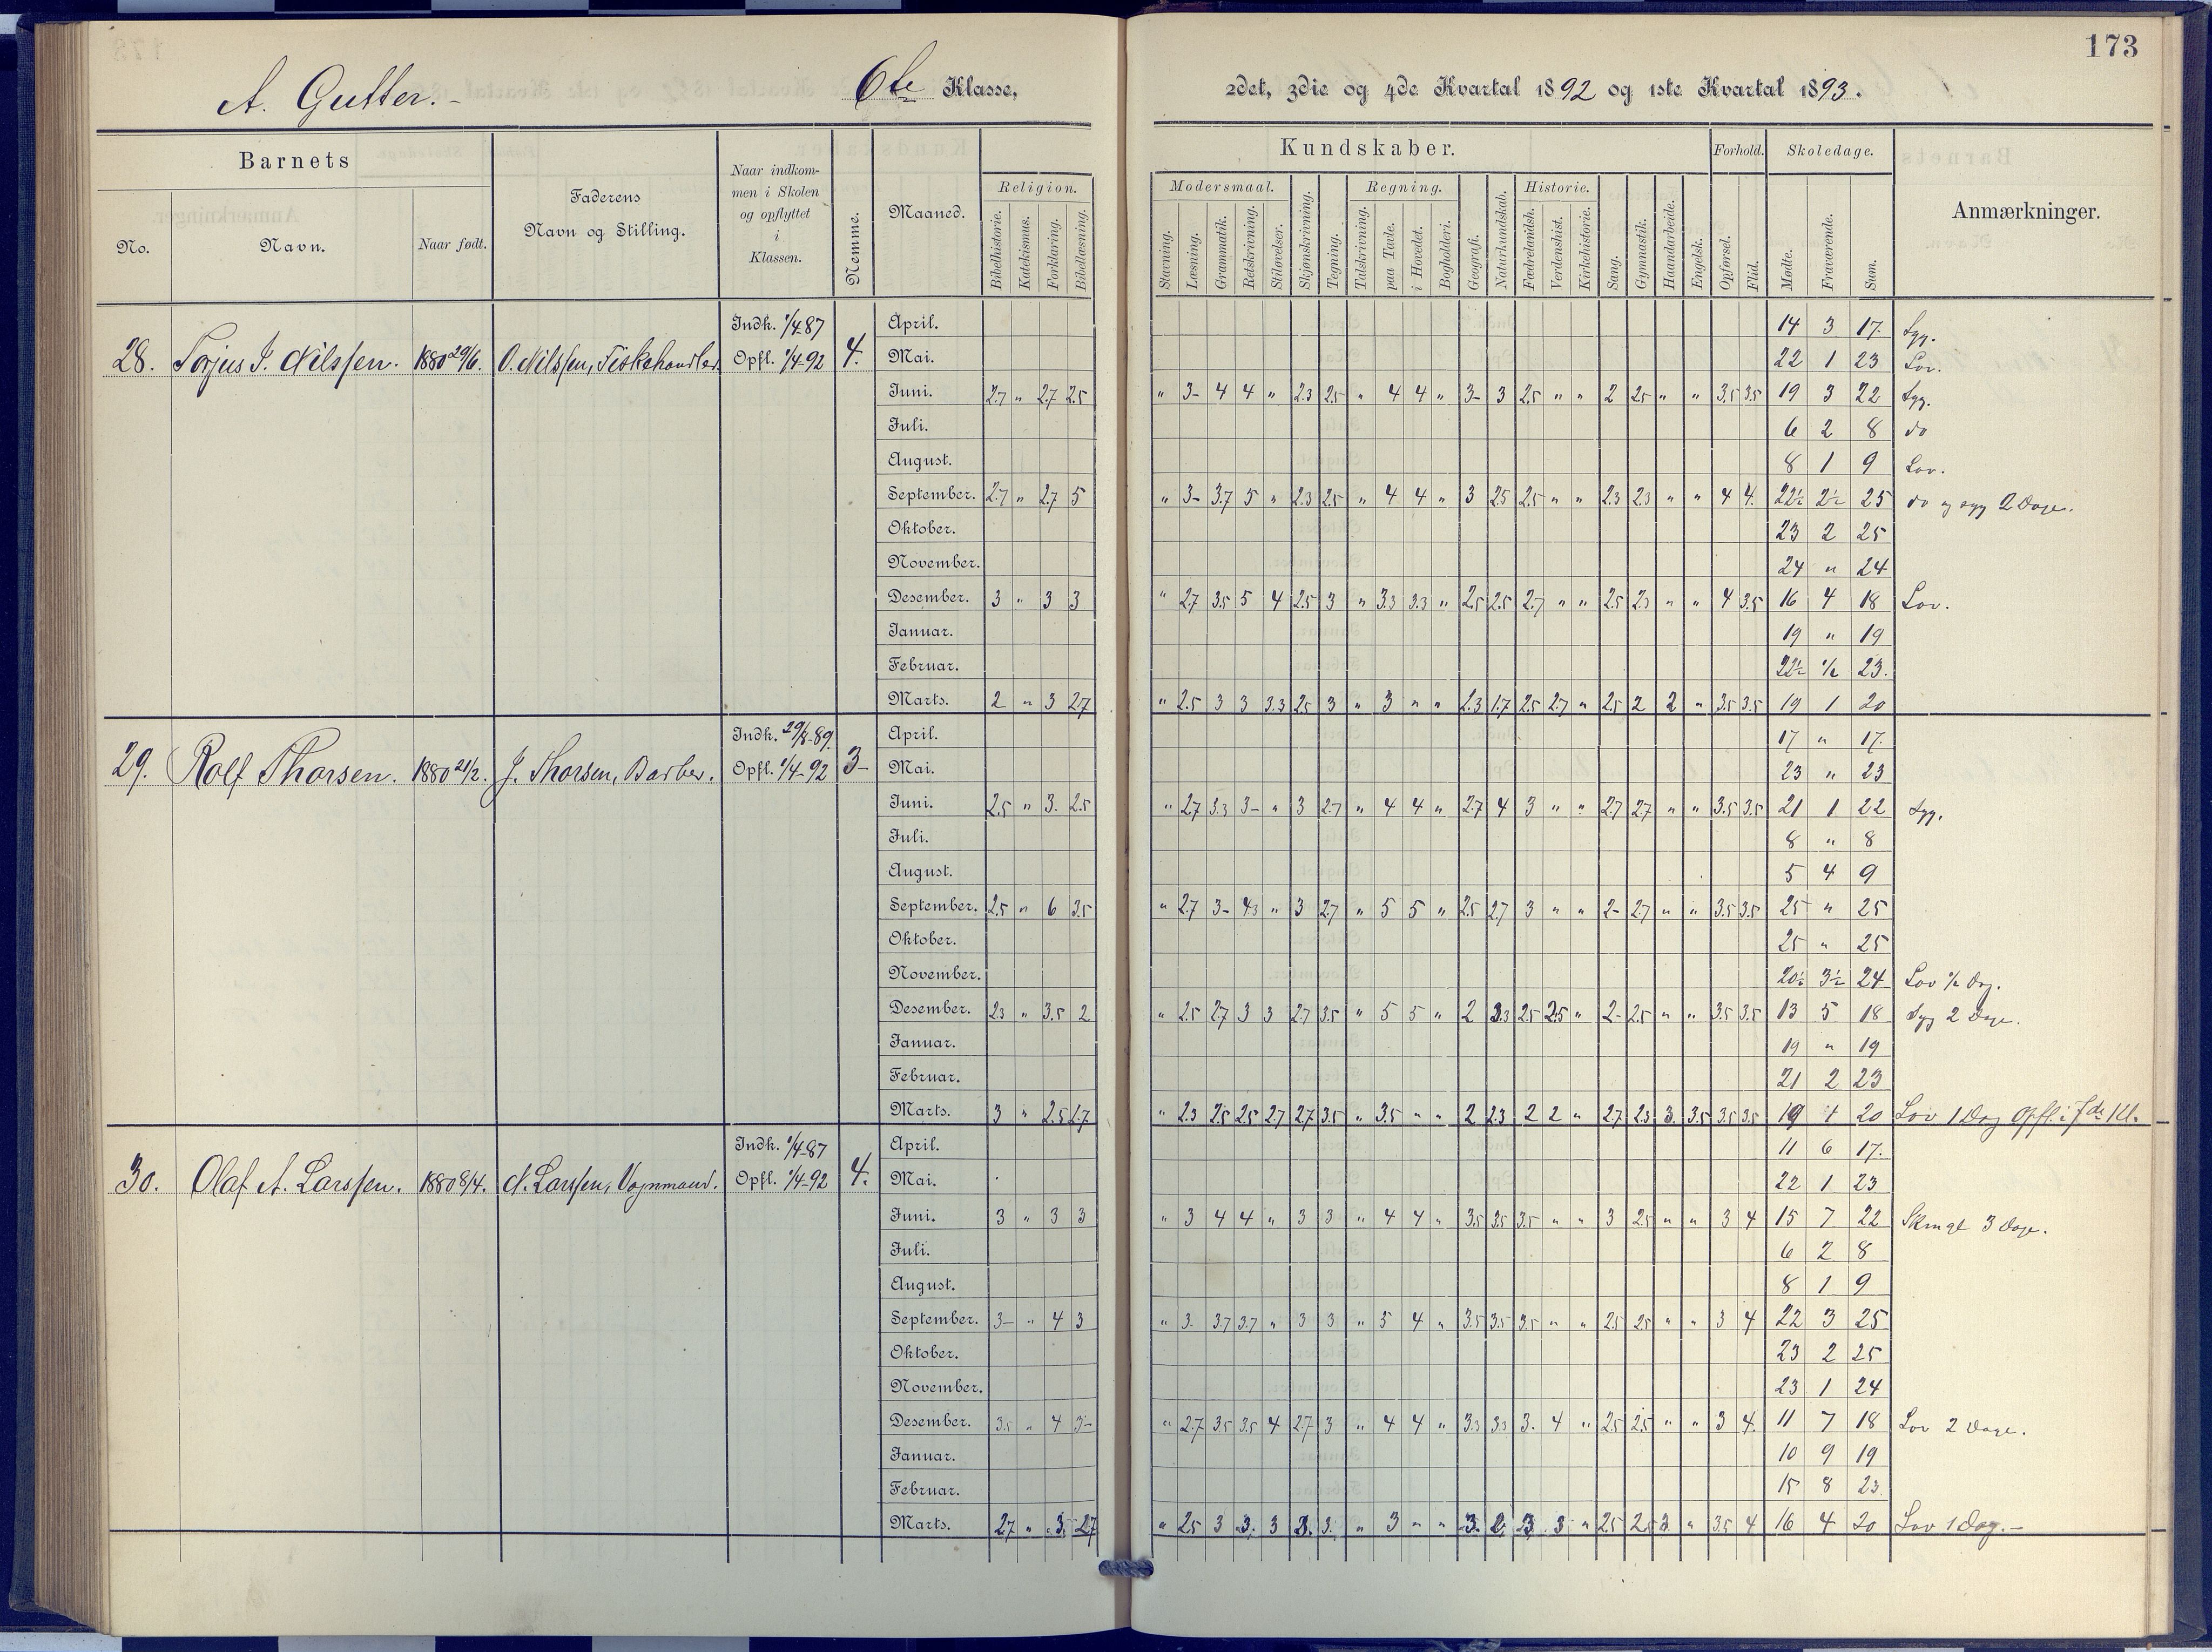 173
A. Gutter. 6te Klasse, 2det, 3die og 4de Kvartal 1892 og 1ste Kvartal 1893.
Barnets
No. Navn. Naar født.
Faderens Navn og Stilling.
Naar indkommen i Skolen og opflyttet i Klassen.
Nemme.
Maaned.
Kundskaber.
Religion.
Bibelhistorie. Katekismus. Forklaring. Bibellæsning.
Modersmaal.
Stavning. Læsning. Grammatik. Retskrivning. Stiløvelser.
Skjønskrivning. Tegning.
Regning.
Talskrivning. paa Tavle. i Hovedet. Bogholderi.
Geografi. Naturkundskab.
Historie.
Fædrelandsh. Verdenshist. Kirkehistorie.
Sang. Gymnastik. Haandarbeide. Engelsk.
Forhold.
Opførsel. Flid.
Skoledage.
Mødte. Fraværende. Sum.
Anmærkninger.
28. Torjus J. Nilssen. 1880 29/6. O. Nilssen, Fiskehandler. Indk. 1/4-87 Opfl. 1/4-92 4.
April. 14 3 17. Syg.
Mai. 22 1 23 Lov.
Juni. 2.7 " 2.7 2.5 " 3- 4 4 " 2.3 2.5 " 4 4 " 3- 3 2.5 " " 2 2.5 " " 3.5 3.5 19 3 22 Syg.
Juli. 6 2 8 do
August. 8 1 9 Lov.
September. 2.7 " 2.7 5 " 3- 3.7 5 " 2.3 2.5 " 4 4 " 3 2.5 2.5 " " 2.3 2.3 " " 4 4. 22½ 2½ 25 do og syg 2 Dage.
Oktober. 23 2 25
November. 24 " 24
Desember. 3 " 3 3 " 2.7 3.5 5 4 2.5 3 " 3.3 3.3 " 2.5 2.5 2.7 " " 2.5 2.3 " " 4 3.5 16 4 18 Lov.
Januar. 19 " 19
Februar. 22½ ½ 23.
Marts. 2 " 3 2.7 " 2.5 3 3 3.3 2.5 3 " 3 " " 2.3 1.7 2.5 2.7 " 2.5 2 2 " 3.5 3.5 19 1 20
29. Rolf Thorsen. 1880 21/2. J. Thorsen, Barber. Indk. 29/8-89. Opfl. 1/4-92 3-
April. 17 " 17.
Mai. 23 " 23
Juni. 2.5 " 3. 2.5 " 2.7 3.3 3- " 3 2.7 " 4 4 " 2.7 4 3 " " 2.7 2.7 " " 3.5 3.5 21 1 22 Syg.
Juli. 8 " 8
August. 5 4 9
September. 2.5 " 6 3.5 " 2.7 3- 4.3 " 3 2.7 " 5 5 " 2.5 2.7 3 " " 2- 2.7 " " 3.5 3.5 25 " 25
Oktober. 25 " 25
November. 20½ 3½ 24 Lov ½ Dag.
Desember. 2.3 " 3.5 2 " 2.5 2.7 3 3 2.7 3.5 " 5 5 " 2 3.3 2.5 2.5 " 2- 2.5 " " 3.5 3.5 13 5 18 Syg 2 Dage.
Januar. 19 " 19
Februar. 21 2 23
Marts. 3 " 2.5 2.7 " 2.3 2.5 2.5 2.7 2.7 3.5 " 3.5 " " 2 2.3 2 2 " 2.7 2.3 3. 3.5 3.5 3.5 19 1 20 Lov 1 Dag Opfl. i 7de Kl.
30. Olaf A. Larssen. 1880 8/4. N. Larssen, Vognmand. Indk. 1/4-87 Opfl. 1/4-92 4.
April. 11 6 17.
Mai. 22 1 23
Juni. 3 " 3 3 " 3 4 4 " 3 3 " 4 4 " 3.5 3.5 3.5 " " 3 2.5 " " 3 4 15 7 22 3 Dage.
Juli. 6 2 8
August. 8 1 9
September. 3- " 4 3 " 3. 3.7 3.7 " 3 3 " 5 4 " 3.5 3.5 3.5 " " 2.5 2.5 " " 3 4 22 3 25
Oktober. 23 2 25
November. 23 1 24
Desember. 3.5 " 4 3- " 2.7 3.5 3.5 4 2.7 3 " 4 4 " 3.3 3.3 3. 4 " 2.5 2.5 " " 3 4. 11 7 18 Lov 2 Dage.
Januar. 10 9 19
Februar. 15 8 23.
Marts. 2.7 " 3.5 2.7 " 2.5 3 3. 3 3. 3. " 3 " " 3. 2. 3. 3 " 2.5 2.5 3. " 3.5 4 16 4 20 Lov 1 Dag.-